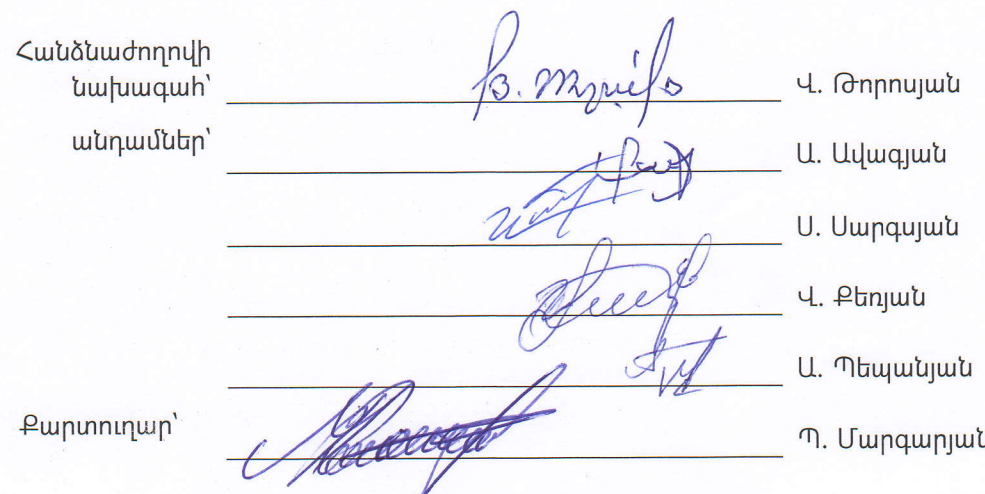 Հանձնաժողովի
նախագահ՝ Վ. Թորոսյան
անդամներ՝ Ա. Ավագյան
Ս. Սարգսյան
Վ. Քեռյան
Ա. Պեպանյան
Քարտուղար՝ Պ. Մարգարյան